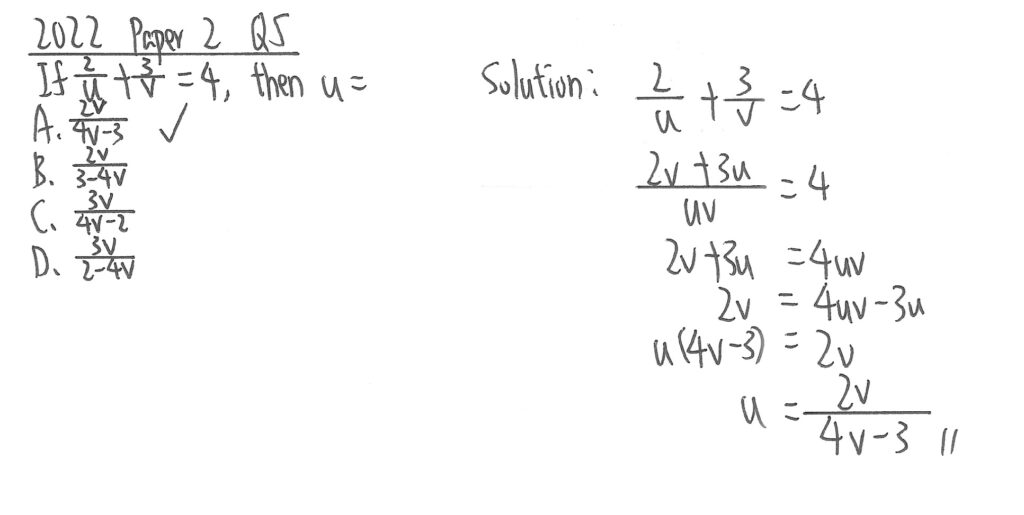 2022 Paper 2 Q5
If 2/u + 3/v = 4, then u =
A. 2v/4v-3 ✓
B. 2v/3-4v
C. 3v/4v-2
D. 3v/2-4v
Solution: 2/u + 3/v = 4
2v+3u/uv = 4
2v+3u = 4uv
2v = 4uv-3u
u(4v-3) = 2v
u = 2v/4v-3 //